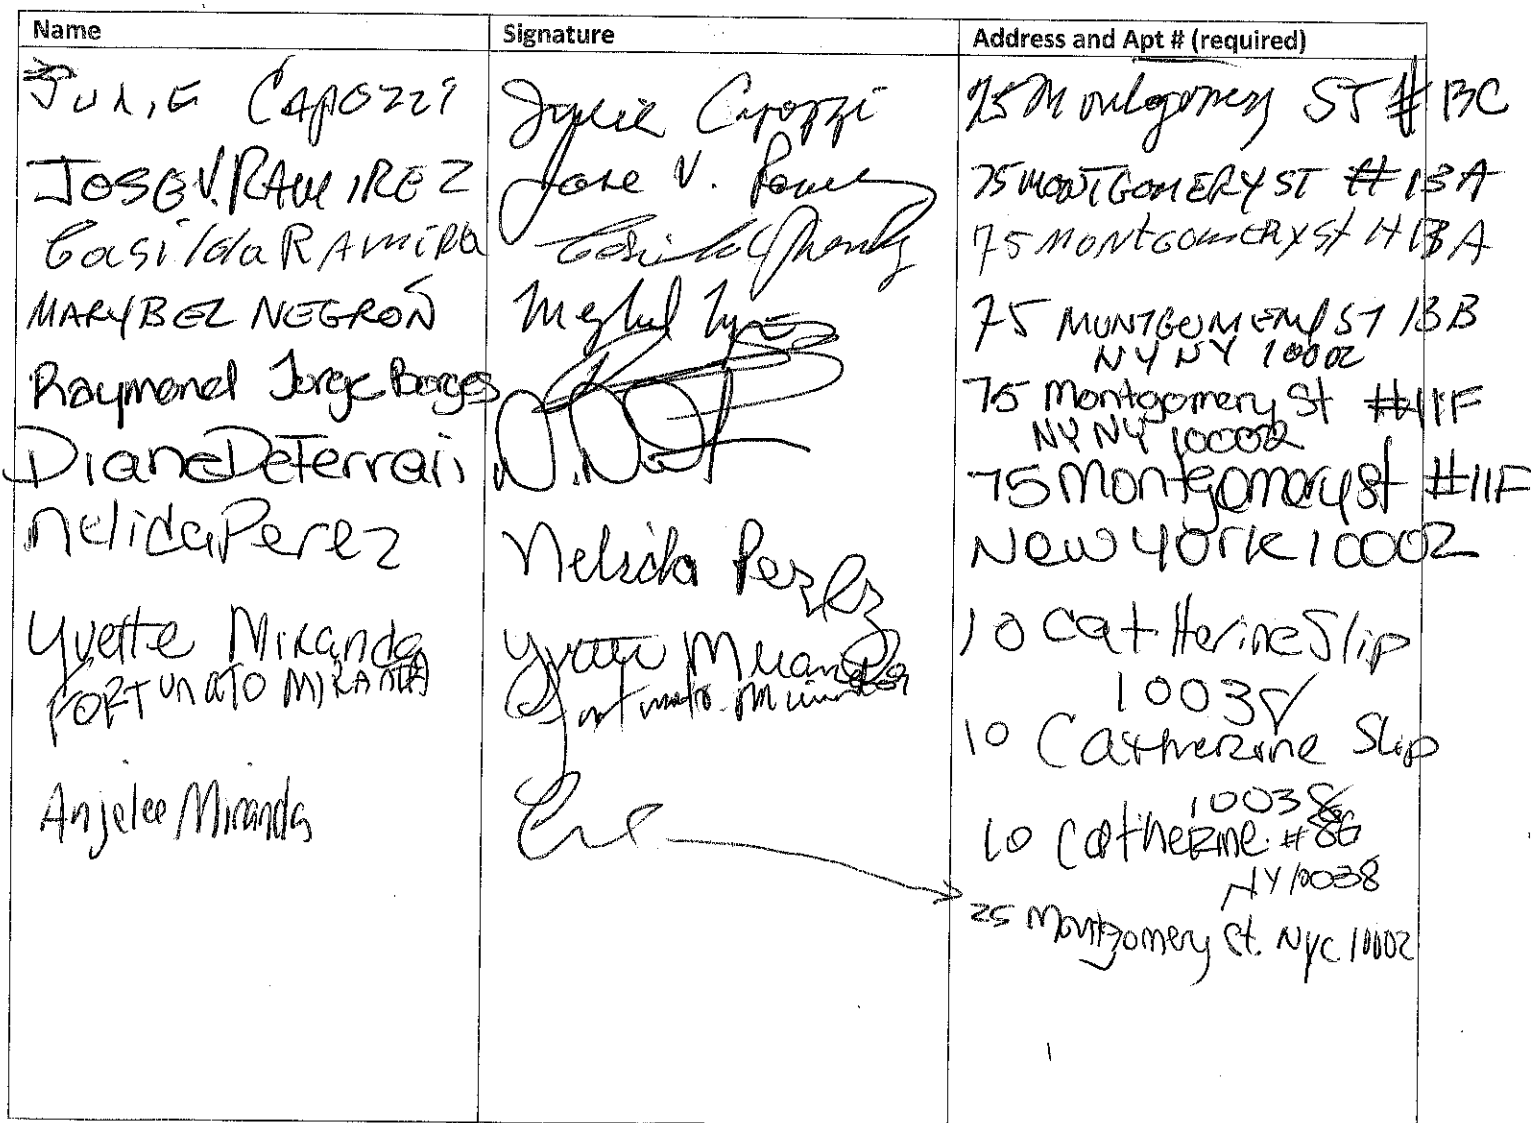 Name Signature Address and Apt # (required)
Julie Capozzi Julie Capozzi 75 Montgomery ST # 13C
JOSE V. RAMIREZ Jose V. 75 MONTGOMERY ST # 13A
Casilda RAMIREZ 75 MONTGOMERY St # 13A
MARYBEL NEGRÓN 75 MONTGOMERY ST 13B
NY NY 10002
Raymond Jorge Borges 75 Montgomery St #11F
NY NY 10002
Diane DeTerrai 75 Montgomery st #11F
Nelida Perez Nelida Perez New York 10002
Yvette Miranda Yvette Miranda 10 Catherine Slip
10038
FORTUNATO MIRANDA Fortunato Miranda 10 Catherine Slip
10038
Anjelee Miranda 10 Catherine #8G
NY 10038
25 Montgomery St. NYC 10002